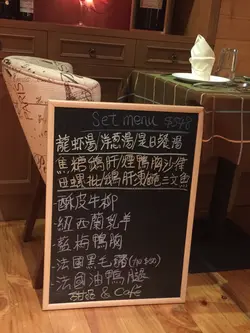 Set menu $548
龍蝦湯/洋葱湯/是日餐湯
焦糖鵝肝/煙鴨胸沙律
田螺批/鵝肝凍/三文魚
-酥皮牛柳
-紐西蘭乳羊
-藍梅鴨胸
-法國黑毛豬
-法國油鴨腿
甜品 & Café